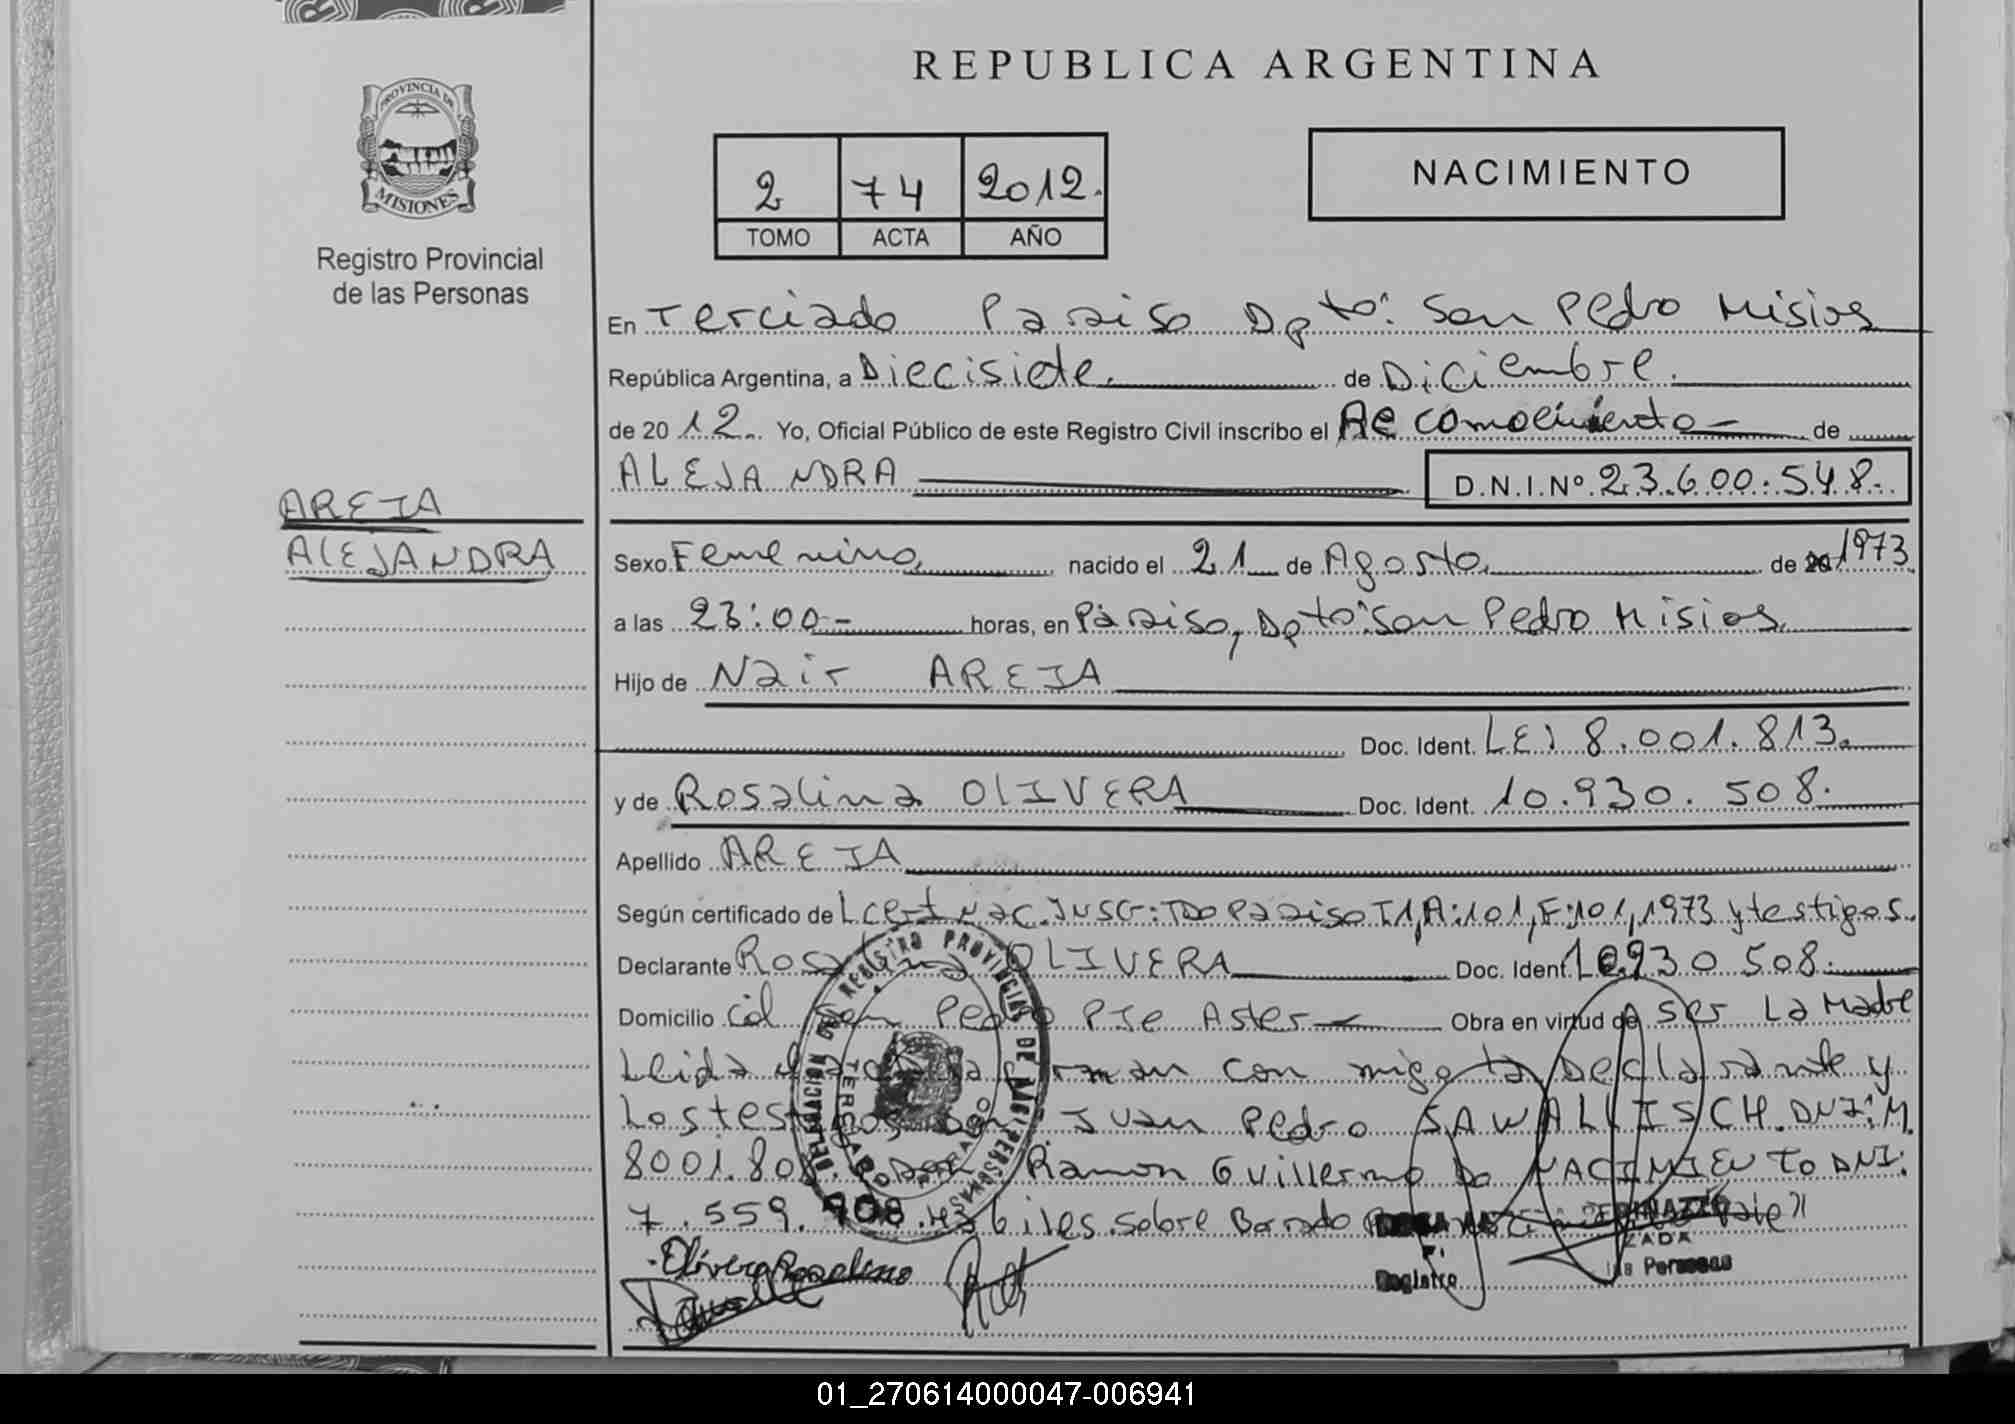 REPUBLICA ARGENTINA
PROVINCIA DE
MISIONES
Registro Provincial
de las Personas
2 74 2012.
TOMO ACTA AÑO
NACIMIENTO
En Terciado Paraiso Dpto: San Pedro Misios
República Argentina, a Diecisiete. de Diciembre.
de 20 12. Yo, Oficial Público de este Registro Civil inscribo el de
ALEJANDRA D.N.I.Nº 23.600.548.
AREJA
ALEJANDRA
Sexo Femenino nacido el 21 de Agosto de 1973
a las 23:00- horas, en Paraiso, Dpto: San Pedro Misios
Hijo de Nair AREJA
Doc. Ident. LE) 8.001.813.
y de Rosalina OLIVERA Doc. Ident. 10.930.508.
Apellido AREJA
Según certificado de Nac. Paraiso T1, A:101, F:101, 1973 y testigos.
Declarante Rosalina OLIVERA Doc. Ident. 10.930.508.
Domicilio Col San Pedro Pje Aster Obra en virtud de ser La Madre
Leida firman con migo la Declarante y
Los testigos Don Juan Pedro SAWALLISCH. DNI: M.
8001.808 Don Ramon Guillermo Do NACIMIENTO DNI:
7.559.908. Habiles. Sobre Borrado Vale"
Olivera Rosalina
DELEGACION DEL REGISTRO PROVINCIAL DE LAS PERSONAS
TERCIADO PARAISO
Registro las Personas
01_270614000047-006941